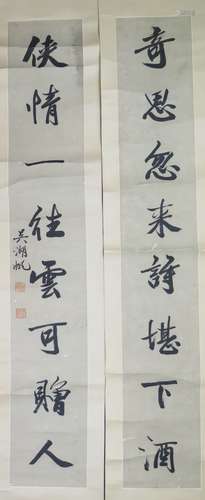 奇思忽来詩堪下酒
侠情一往雲可贈人
吴湖帆